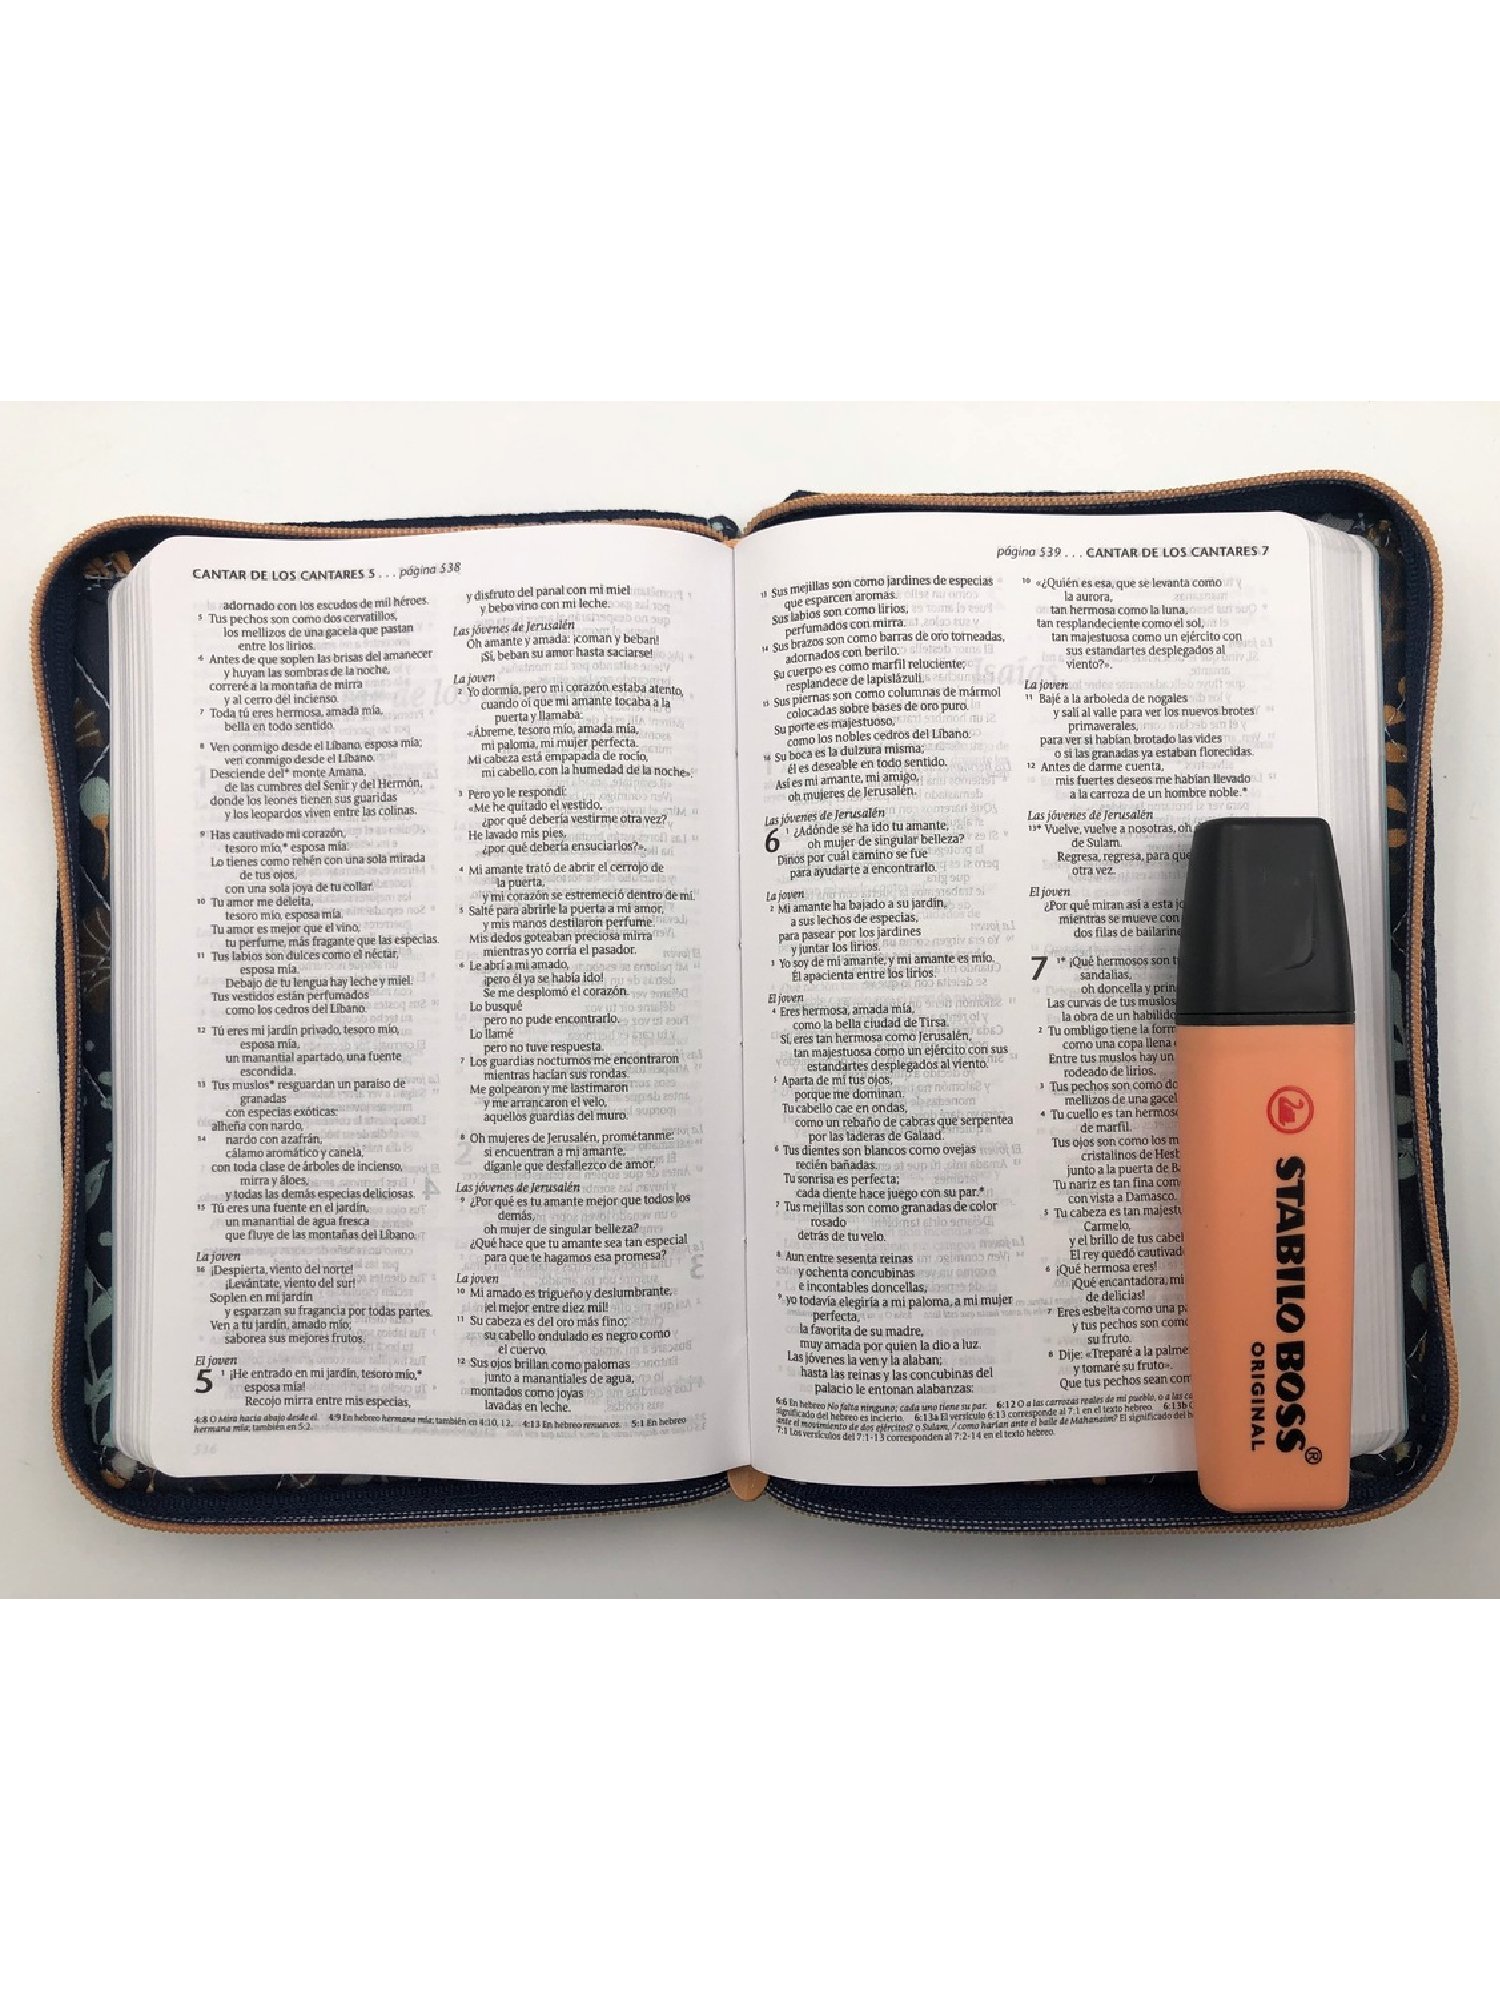 CANTAR DE LOS CANTARES 5 . . . página 538
adornado con los escudos de mil héroes.
5 Tus pechos son como dos cervatillos,
los mellizos de una gacela que pastan
entre los lirios.
6 Antes de que soplen las brisas del amanecer
y huyan las sombras de la noche,
correré a la montaña de mirra
y al cerro del incienso.
7 Toda tú eres hermosa, amada mía,
bella en todo sentido.
8 Ven conmigo desde el Líbano, esposa mía;
ven conmigo desde el Líbano.
Desciende del* monte Amana,
de las cumbres del Senir y del Hermón,
donde los leones tienen sus guaridas
y los leopardos viven entre las colinas.
9 Has cautivado mi corazón,
tesoro mío,* esposa mía.
Lo tienes como rehén con una sola mirada
de tus ojos,
con una sola joya de tu collar.
10 Tu amor me deleita,
tesoro mío, esposa mía.
Tu amor es mejor que el vino,
tu perfume, más fragante que las especias.
11 Tus labios son dulces como el néctar,
esposa mía.
Debajo de tu lengua hay leche y miel.
Tus vestidos están perfumados
como los cedros del Líbano.
12 Tú eres mi jardín privado, tesoro mío,
esposa mía,
un manantial apartado, una fuente
escondida.
13 Tus muslos* resguardan un paraíso de
granadas
con especias exóticas:
alheña con nardo,
14 nardo con azafrán,
cálamo aromático y canela,
con toda clase de árboles de incienso,
mirra y áloes,
y todas las demás especias deliciosas.
15 Tú eres una fuente en el jardín,
un manantial de agua fresca
que fluye de las montañas del Líbano.
La joven
16 ¡Despierta, viento del norte!
¡Levántate, viento del sur!
Soplen en mi jardín
y esparzan su fragancia por todas partes.
Ven a tu jardín, amado mío;
saborea sus mejores frutos.
El joven
5 1 ¡He entrado en mi jardín, tesoro mío,*
esposa mía!
Recojo mirra entre mis especias,
y disfruto del panal con mi miel
y bebo vino con mi leche.
Las jóvenes de Jerusalén
Oh amante y amada: ¡coman y beban!
¡Sí, beban su amor hasta saciarse!
La joven
2 Yo dormía, pero mi corazón estaba atento,
cuando oí que mi amante tocaba a la
puerta y llamaba:
«Ábreme, tesoro mío, amada mía,
mi paloma, mi mujer perfecta.
Mi cabeza está empapada de rocío,
mi cabello, con la humedad de la noche».
3 Pero yo le respondí:
«Me he quitado el vestido,
¿por qué debería vestirme otra vez?
He lavado mis pies,
¿por qué debería ensuciarlos?».
4 Mi amante trató de abrir el cerrojo de
la puerta,
y mi corazón se estremeció dentro de mí.
5 Salté para abrirle la puerta a mi amor,
y mis manos destilaron perfume.
Mis dedos goteaban preciosa mirra
mientras yo corría el pasador.
6 Le abrí a mi amado,
¡pero él ya se había ido!
Se me desplomó el corazón.
Lo busqué
pero no pude encontrarlo.
Lo llamé
pero no tuve respuesta.
7 Los guardias nocturnos me encontraron
mientras hacían sus rondas.
Me golpearon y me lastimaron
y me arrancaron el velo,
aquellos guardias del muro.
8 Oh mujeres de Jerusalén, prométanme:
si encuentran a mi amante,
díganle que desfallezco de amor.
Las jóvenes de Jerusalén
9 ¿Por qué es tu amante mejor que todos los
demás,
oh mujer de singular belleza?
¿Qué hace que tu amante sea tan especial
para que te hagamos esa promesa?
La joven
10 Mi amado es trigueño y deslumbrante,
¡el mejor entre diez mil!
11 Su cabeza es del oro más fino;
su cabello ondulado es negro como
el cuervo.
12 Sus ojos brillan como palomas
junto a manantiales de agua,
montados como joyas
lavadas en leche.
4:8 O Mira hacia abajo desde el. 4:9 En hebreo hermana mía; también en 4:10, 12. 4:13 En hebreo renuevos. 5:1 En hebreo
hermana mía; también en 5:2.
página 539 . . . CANTAR DE LOS CANTARES 7
13 Sus mejillas son como jardines de especias
que esparcen aromas.
Sus labios son como lirios,
perfumados con mirra.
14 Sus brazos son como barras de oro torneadas,
adornados con berilo.
Su cuerpo es como marfil reluciente;
resplandece de lapislázuli.
15 Sus piernas son como columnas de mármol
colocadas sobre bases de oro puro.
Su porte es majestuoso,
como los nobles cedros del Líbano.
16 Su boca es la dulzura misma;
él es deseable en todo sentido.
Así es mi amante, mi amigo,
oh mujeres de Jerusalén.
Las jóvenes de Jerusalén
6 1 ¿Adónde se ha ido tu amante,
oh mujer de singular belleza?
Dinos por cuál camino se fue
para ayudarte a encontrarlo.
La joven
2 Mi amante ha bajado a su jardín,
a sus lechos de especias,
para pasear por los jardines
y juntar los lirios.
3 Yo soy de mi amante, y mi amante es mío.
Él apacienta entre los lirios.
El joven
4 Eres hermosa, amada mía,
como la bella ciudad de Tirsa.
Sí, eres tan hermosa como Jerusalén,
tan majestuosa como un ejército con sus
estandartes desplegados al viento.
5 Aparta de mí tus ojos,
porque me dominan.
Tu cabello cae en ondas,
como un rebaño de cabras que serpentea
por las laderas de Galaad.
6 Tus dientes son blancos como ovejas
recién bañadas.
Tu sonrisa es perfecta;
cada diente hace juego con su par.*
7 Tus mejillas son como granadas de color
rosado
detrás de tu velo.
8 Aun entre sesenta reinas
y ochenta concubinas
e incontables doncellas,
9 yo todavía elegiría a mi paloma, a mi mujer
perfecta,
la favorita de su madre,
muy amada por quien la dio a luz.
Las jóvenes la ven y la alaban;
hasta las reinas y las concubinas del
palacio le entonan alabanzas:
10 «¿Quién es esa, que se levanta como
la aurora,
tan hermosa como la luna,
tan resplandeciente como el sol,
tan majestuosa como un ejército con
sus estandartes desplegados al
viento?».
La joven
11 Bajé a la arboleda de nogales
y salí al valle para ver los nuevos brotes
primaverales,
para ver si habían brotado las vides
o si las granadas ya estaban florecidas.
12 Antes de darme cuenta,
mis fuertes deseos me habían llevado
a la carroza de un hombre noble.*
Las jóvenes de Jerusalén
13* Vuelve, vuelve a nosotras, oh
de Sulam.
Regresa, regresa, para que
otra vez.
El joven
¿Por qué miran así a esta
mientras se mueve con
dos filas de
7 1* ¡Qué hermosos son
sandalias,
oh doncella y
Las curvas de tus muslos
la obra de un
2 Tu ombligo tiene la
como una copa llena
Entre tus muslos hay un
rodeado de lirios.
3 Tus pechos son como
mellizos de una
4 Tu cuello es tan
de marfil.
Tus ojos son como los
cristalinos de
junto a la puerta de
Tu nariz es tan fina
con vista a Damasco.
5 Tu cabeza es tan
Carmelo,
y el brillo de tus
El rey quedó
6 ¡Qué hermosa eres!
¡Qué encantadora, mi
de delicias!
7 Eres esbelta como una
y tus pechos son
su fruto.
8 Dije: «Treparé a la
y tomaré su fruto».
Que tus pechos sean
6:6 En hebreo No falta ninguno; cada uno tiene su par. 6:12 O a las carrozas reales de mi pueblo, o a las
significado del hebreo es incierto. 6:13a El versículo 6:13 corresponde al 7:1 en el texto hebreo. 6:13b
ante el movimiento de dos ejércitos? o Sulam, / como harían ante el baile de Mahanaim? El significado del
7:1 Los versículos del 7:1-13 corresponden al 7:2-14 en el texto hebreo.
STABILO BOSS®
ORIGINAL